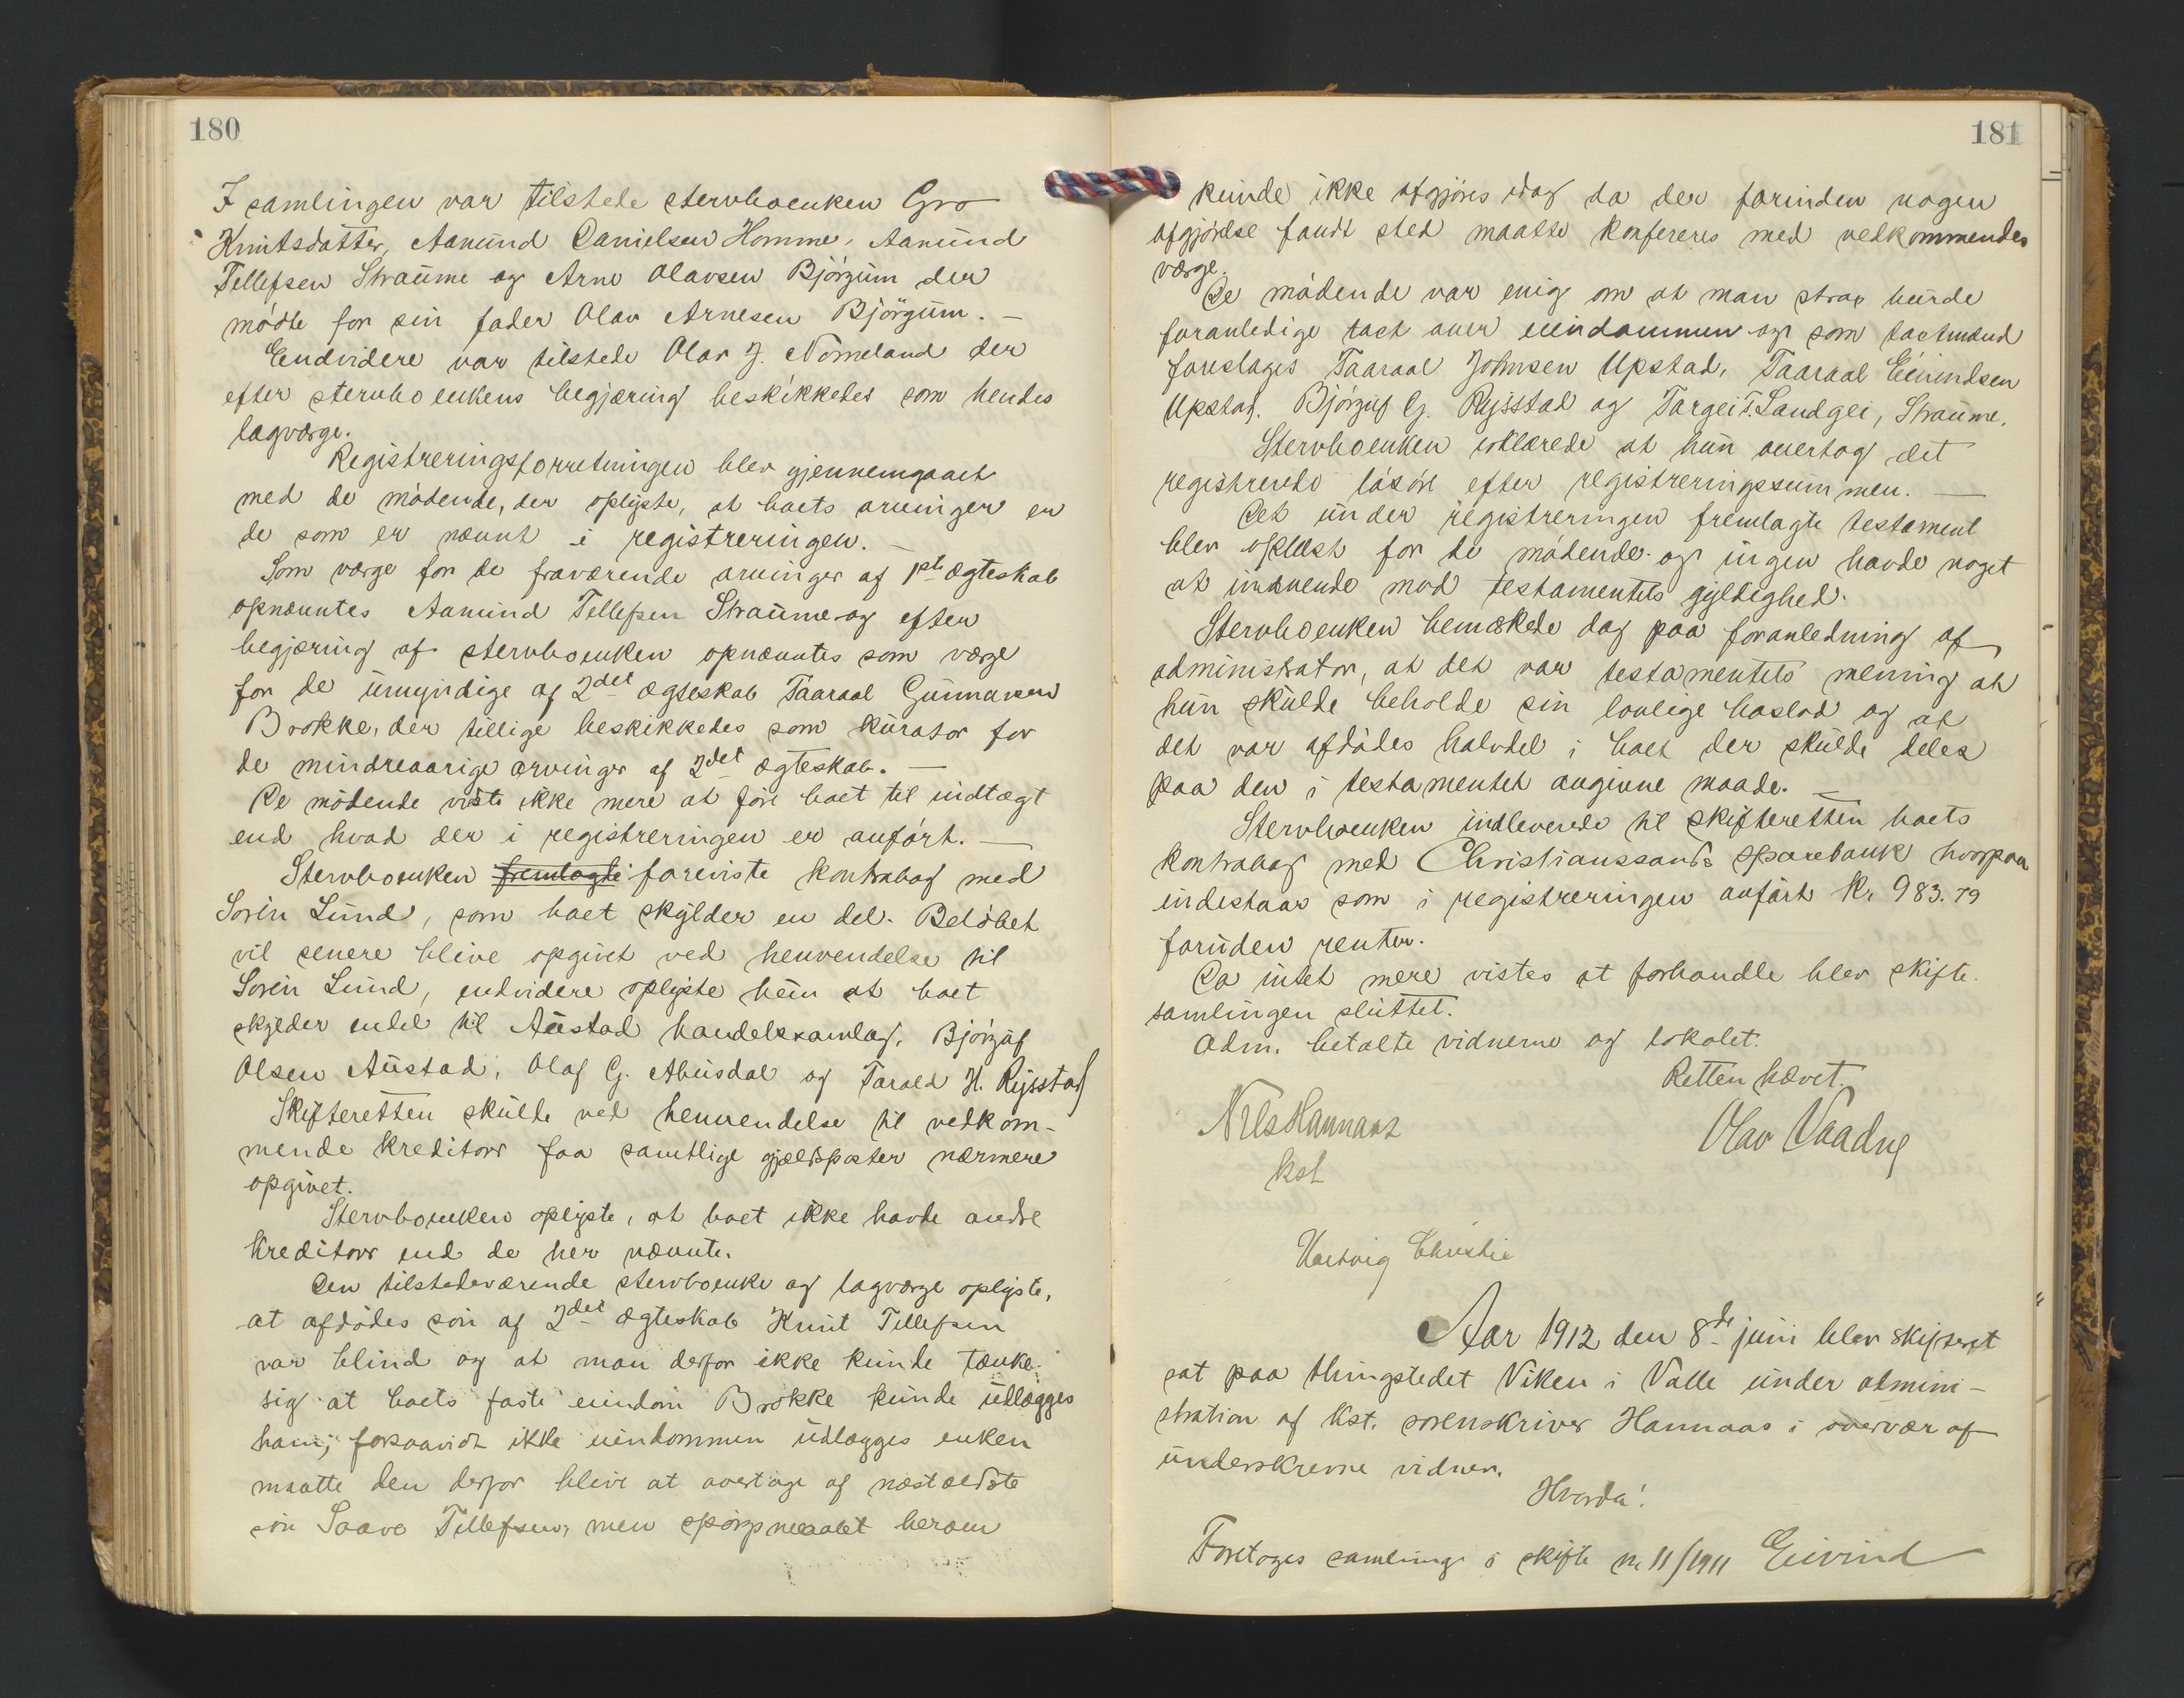 180
I samlingen var tilstede stervboenken Gro
Knutsdatter, Aanund Danielsen Homme, Aanund
Tellefsen Straume og Arne Olavsen Bjørgum der
mødte for sin fader Olav Arnesen Bjørgum. —
Endvidere var tilstede Olav J. Nomeland der
efter stervboenkens begjæring beskikkedes som hendes
lagværge.
Registreringsforretningen blev gjennemgaaet
med de mødende, der oplyste, at boets arvinger er
de som er nævnt i registreringen. —
Som værge for de fraværende arvinger af 1ste ægteskab
opnævntes Aanund Tellefsen Straume og efter
begjæring af stervboenken opnævntes som værge
for de umyndige af 2det ægteskab Taaraal Gunnarsen
Brokke, der tillige beskikkedes som kurator for
de mindreaarige arvinger af 2det ægteskab. —
De mødende viste ikke mere at føre boet til indtægt
end hvad der i registreringen er anført. —
Stervboenken fremlagte foreviste kontrabog med
Soren Lund, som boet skylder en del. Beløbet
vil senere blive opgivet ved henvendelse til
Soren Lund, endvidere oplyste hun at boet
skylder endel til Austad handelssamlag, Bjørguf
Olsen Austad, Olaf G. Abusdal og Tarald H. Rysstad
Skifteretten skulde ved henvendelse til vedkom-
mende kreditorer faa samtlige gjældsposter nærmere
opgivet.
Stervboenken oplyste, at boet ikke havde andre
kreditorer end de her nævnte.
Den tilstedeværende stervboenke og lagværge oplyste,
at afdødes søn af 2det ægteskab Knut Tellefsen
var blind og at man derfor ikke kunde tænke
sig at boets faste eiendom Brokke kunde udlægges
ham; forsaavidt ikke eiendommen udlægges enken
maatte den derfor blive at overtage af næstældste
søn Saave Tellefsen, men spørgsmaalet herom
181
kunde ikke afgjøres idag da der forinden nogen
afgjørelse fandt sted maatte konfereres med vedkommendes
værge.
De mødende var enig om at man strax burde
foranledige taxt over eiendommen og som taxtmænd
foreslages Taaraal Johnsen Upstad, Taaraal Eivindsen
Upstad, Bjørguf G. Rysstad og Targei T. Landgei, Straume.
Stervboenken erklærede at hun overtog det
registrerede løsøre efter registreringssummen. —
Det under registreringen fremlagte testament
blev oplæst for de mødende og ingen havde noget
at indvende mod testamentets gyldighed.
Stervboenken bemærkede dog paa foranledning af
administrator, at det var testamentets mening at
hun skulde beholde sin lovlige boslod og at
det var afdødes halvdel i boet der skulde deles
paa den i testamentet angivne maade. —
Stervboenken indleverede til skifteretten boets
kontrabog med Christianssands sparebank hvorpaa
indestaar som i registreringen anført kr. 983.79
foruden renter.
Da intet mere vistes at forhandle blev skifte-
samlingen sluttet.
Adm. betalte vidnerne og lokalet.
Retten hævet.
Nils Hannaas
kst
Olav Vaadne
Hartvig Christie
Aar 1912 den 8de juni blev skifteret
sat paa thingstedet Viken i Valle under admini-
stration af kst. sorenskriver Hannaas i overvær af
underskrevne vidner.
Hvorda!
Foretoges samling i skifte nr 11/1911 Eivind